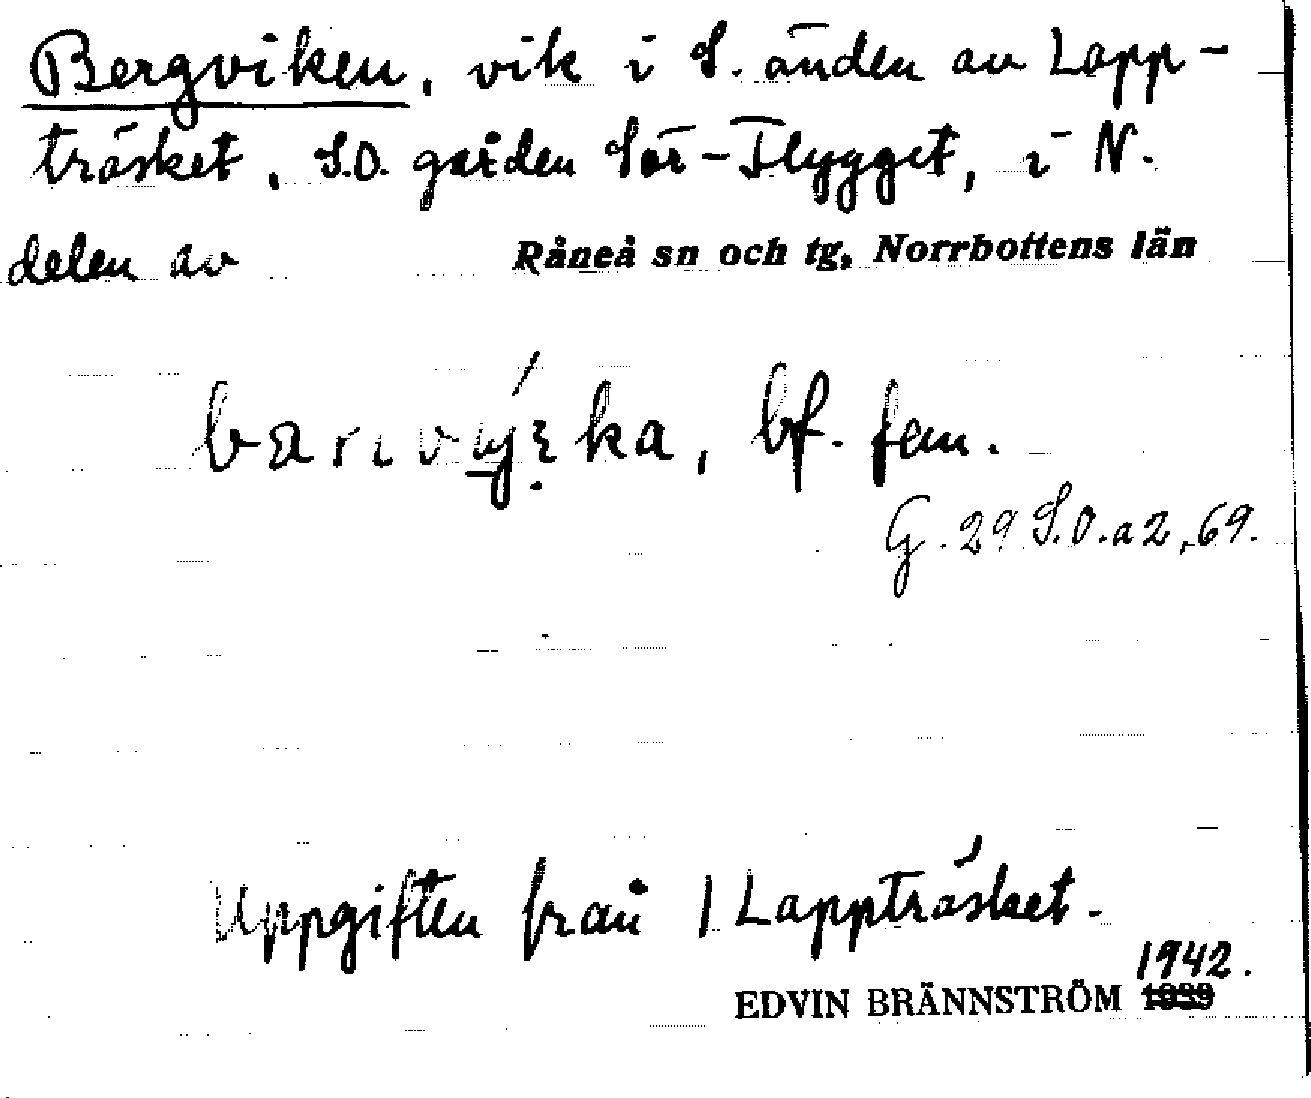 Bergviken, vik i S. änden av Lapp-
träsket, S.O. gården Sör-Flygget, i N.
delen av Råneå sn och tg, Norrbottens län
bf. fem.
G. 29 S.O. a 2, 69.
Uppgiften från 1 Lappträsket.
1942.
EDVIN BRÄNNSTRÖM 1939